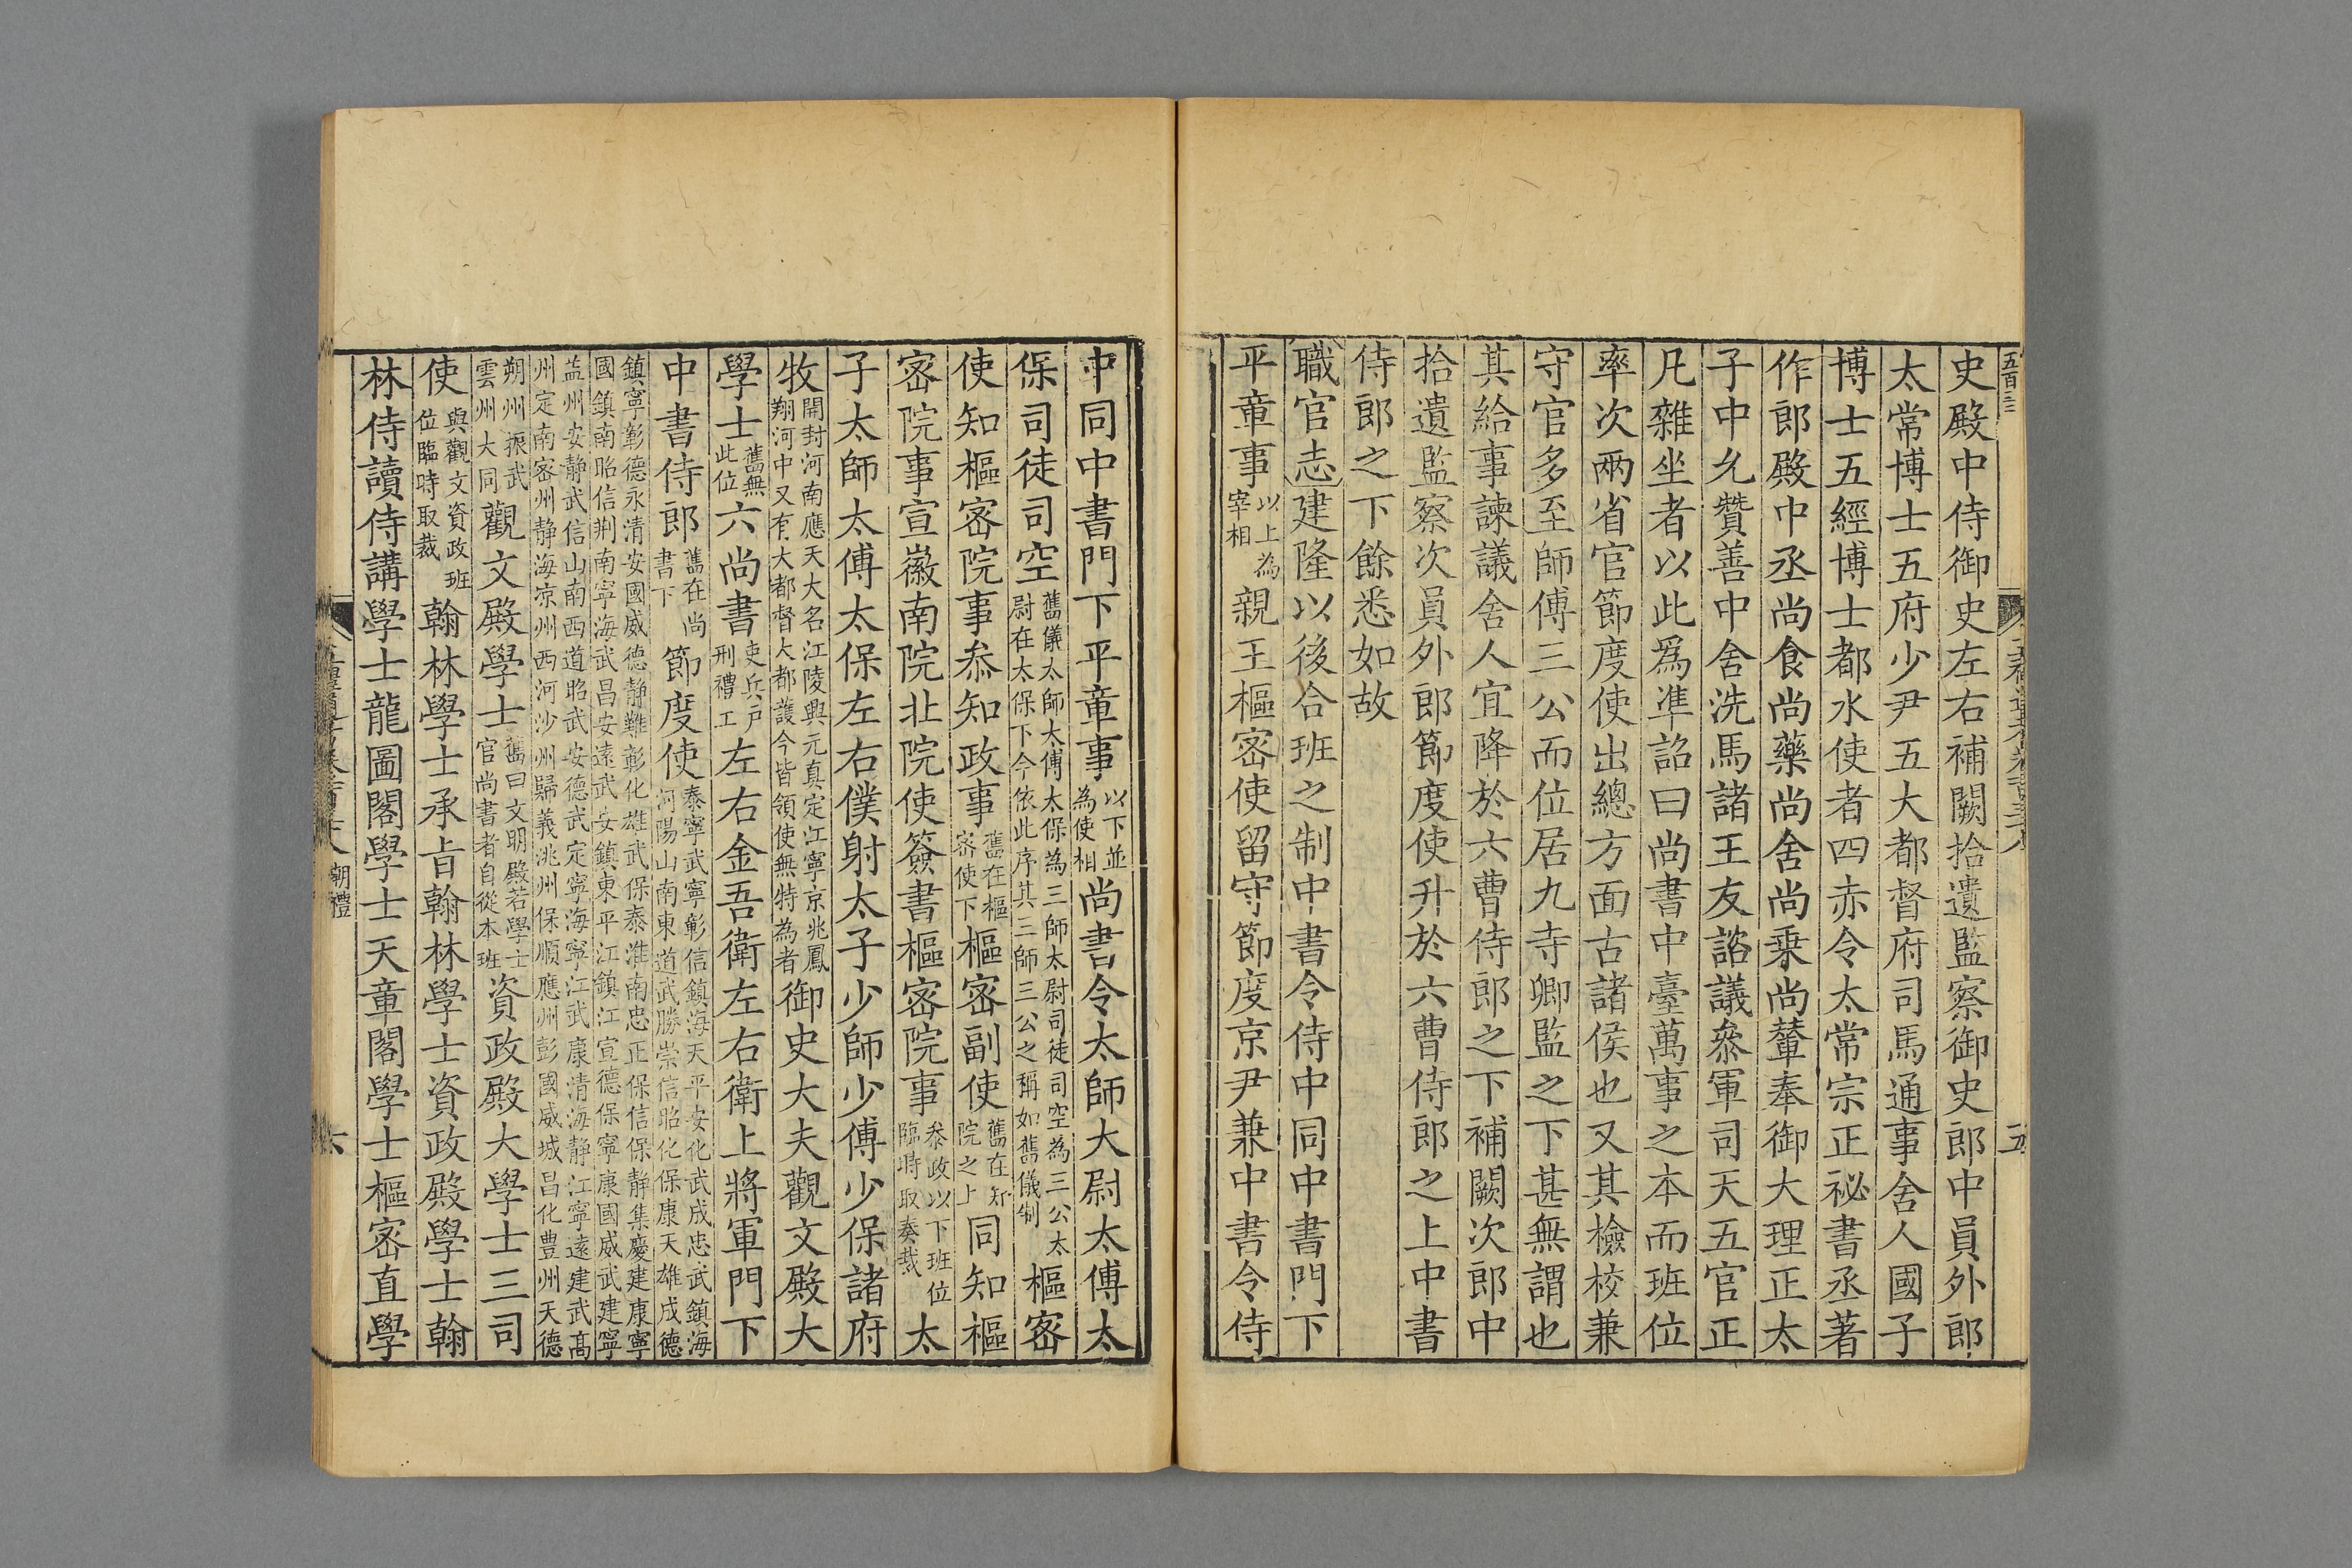 史殿中侍御史左右補闕拾遺監察御史郎中員外郎
太常博士五府少尹五大都督府司馬通事舍人國子
博士五經博士都水使者四赤令太常宗正祕書丞著
作郎殿中丞尚食尚藥尚舍尚乗尚輦奉御大理正太
子中允贊善中舍洗馬諸王友諮議叅軍司天五官正
凡雜坐者以此爲準詔曰尚書中臺萬事之本而班位
率次兩省官節度使出總方面古諸侯也又其檢校兼
守官多至師傅三公而位居九寺卿監之下甚無謂也
其給事諫議舍人宜降於六曹侍郎之下補闕次郎中
拾遺監察次員外郎節度使升於六曹侍郎之上中書
侍郎之下餘悉如故
職官志建隆以後合班之制中書令侍中同中書門下
平章事以上為宰相親王樞密使留守節度京尹兼中書令侍
中同中書門下平章事以下並為使相尚書令太師大尉太傅太
保司徒司空舊儀太師太傅太保為三師太尉司徒司空為三公太尉在太保下今依此序其三師三公之稱如舊儀制樞密
使知樞密院事叅知政事舊在樞密使下樞密副使舊在知院之上同知樞
密院事宣徽南院北院使簽書樞密院事叅政以下班位臨時取奏裁太
子太師太傅太保左右僕射太子少師少傅少保諸府
牧開封河南應天大名江陵興元真定江寧京兆鳳翔河中又有大都督大都護今皆領使無特為者御史大夫觀文殿大
學士舊無此位六尚書吏兵戶刑禮工左右金吾衛左右衛上將軍門下
中書侍郎舊在尚書下節度使泰寧武寧彰信鎮海天平安化武成忠武鎮海河陽山南東道武勝崇信昭化保康天雄成德
鎮寧彰德永清安國威德靜難彰化雄武保泰淮南忠正保信保靜集慶建康寧國鎮南昭信荆南寧海武昌安遠武安鎮東平江鎮江宣德保寧康國威武建寧
益州安靜武信山南西道昭武安德武定寧海寧江武康清海靜江寧遠建武髙州定南密州靜海凉州西河沙州歸義洮州保順應州彭國威城昌化豊州天德
朔州振武雲州大同觀文殿學士舊曰文明殿若學士官尚書者自從本班資政殿大學士三司
使與觀文資政班位臨時取裁翰林學士承旨翰林學士資政殿學士翰
林侍讀侍講學士龍圖閣學士天章閣學士樞密直學
朝禮
六